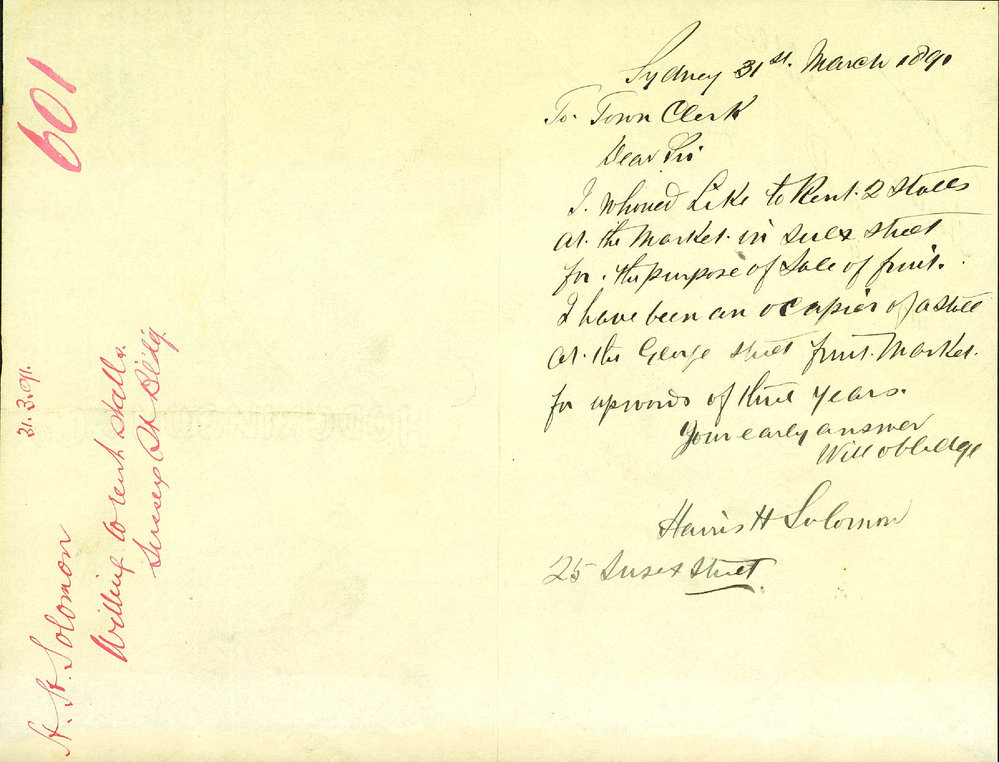 601
31.3.91.
H. H. Solomon
Willing to rent stalls.
Sussex St Bldg
Sydney 31st. March 1891
To. Town Clerk
Dear Sir
I. Whoued Like to Rent. 2 Stalls
at. the Market. in Susex street
for. the purpose of Sale of fruit.
I have been an ocapier of a stall
at. the George street fruit. Market.
for upwords of three years.
Your early answer
Will obbledge
Harris H Solomon
25 Susex Street.